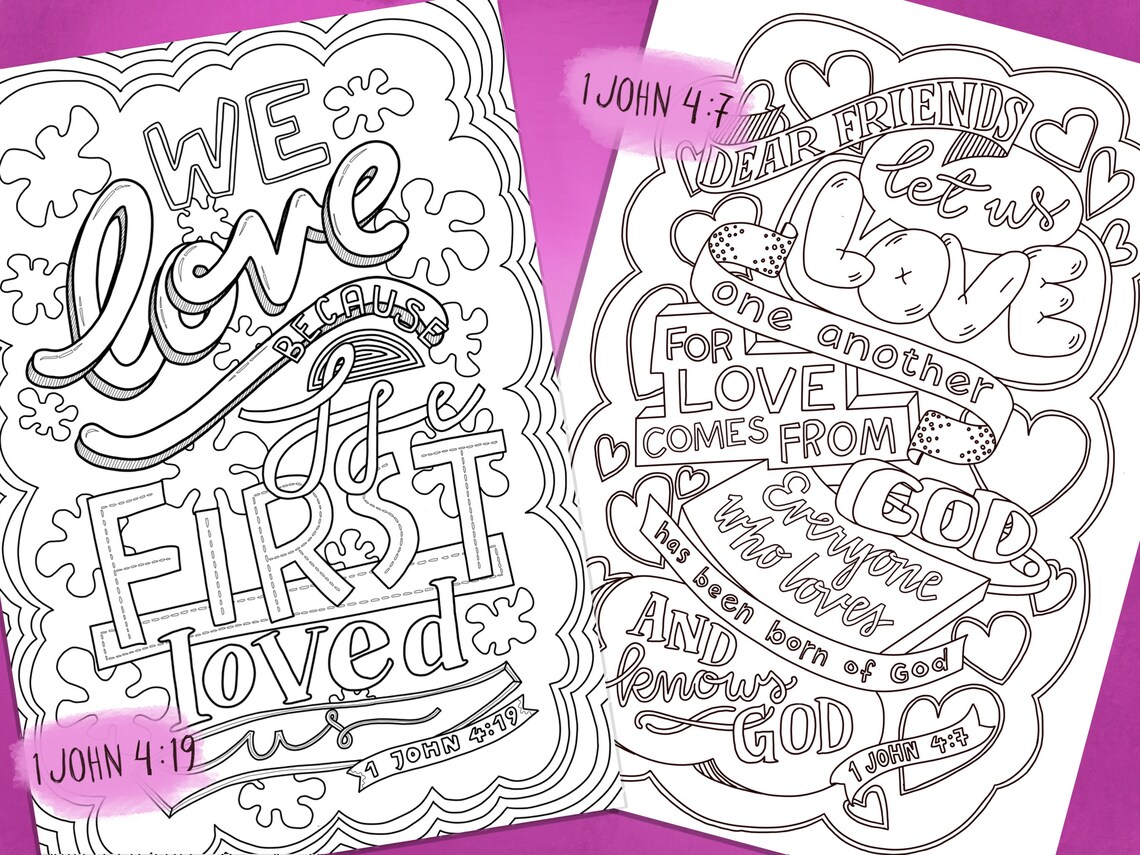 WE
love
BECAUSE
He
FIRST
loved
us
1 JOHN 4:19
1 JOHN 4:19
1 JOHN 4:7
DEAR FRIENDS
let us
LOVE
one another
FOR
LOVE
COMES FROM
GOD
Everyone
who loves
has been born of God
AND
knows
GOD
1 JOHN 4:7